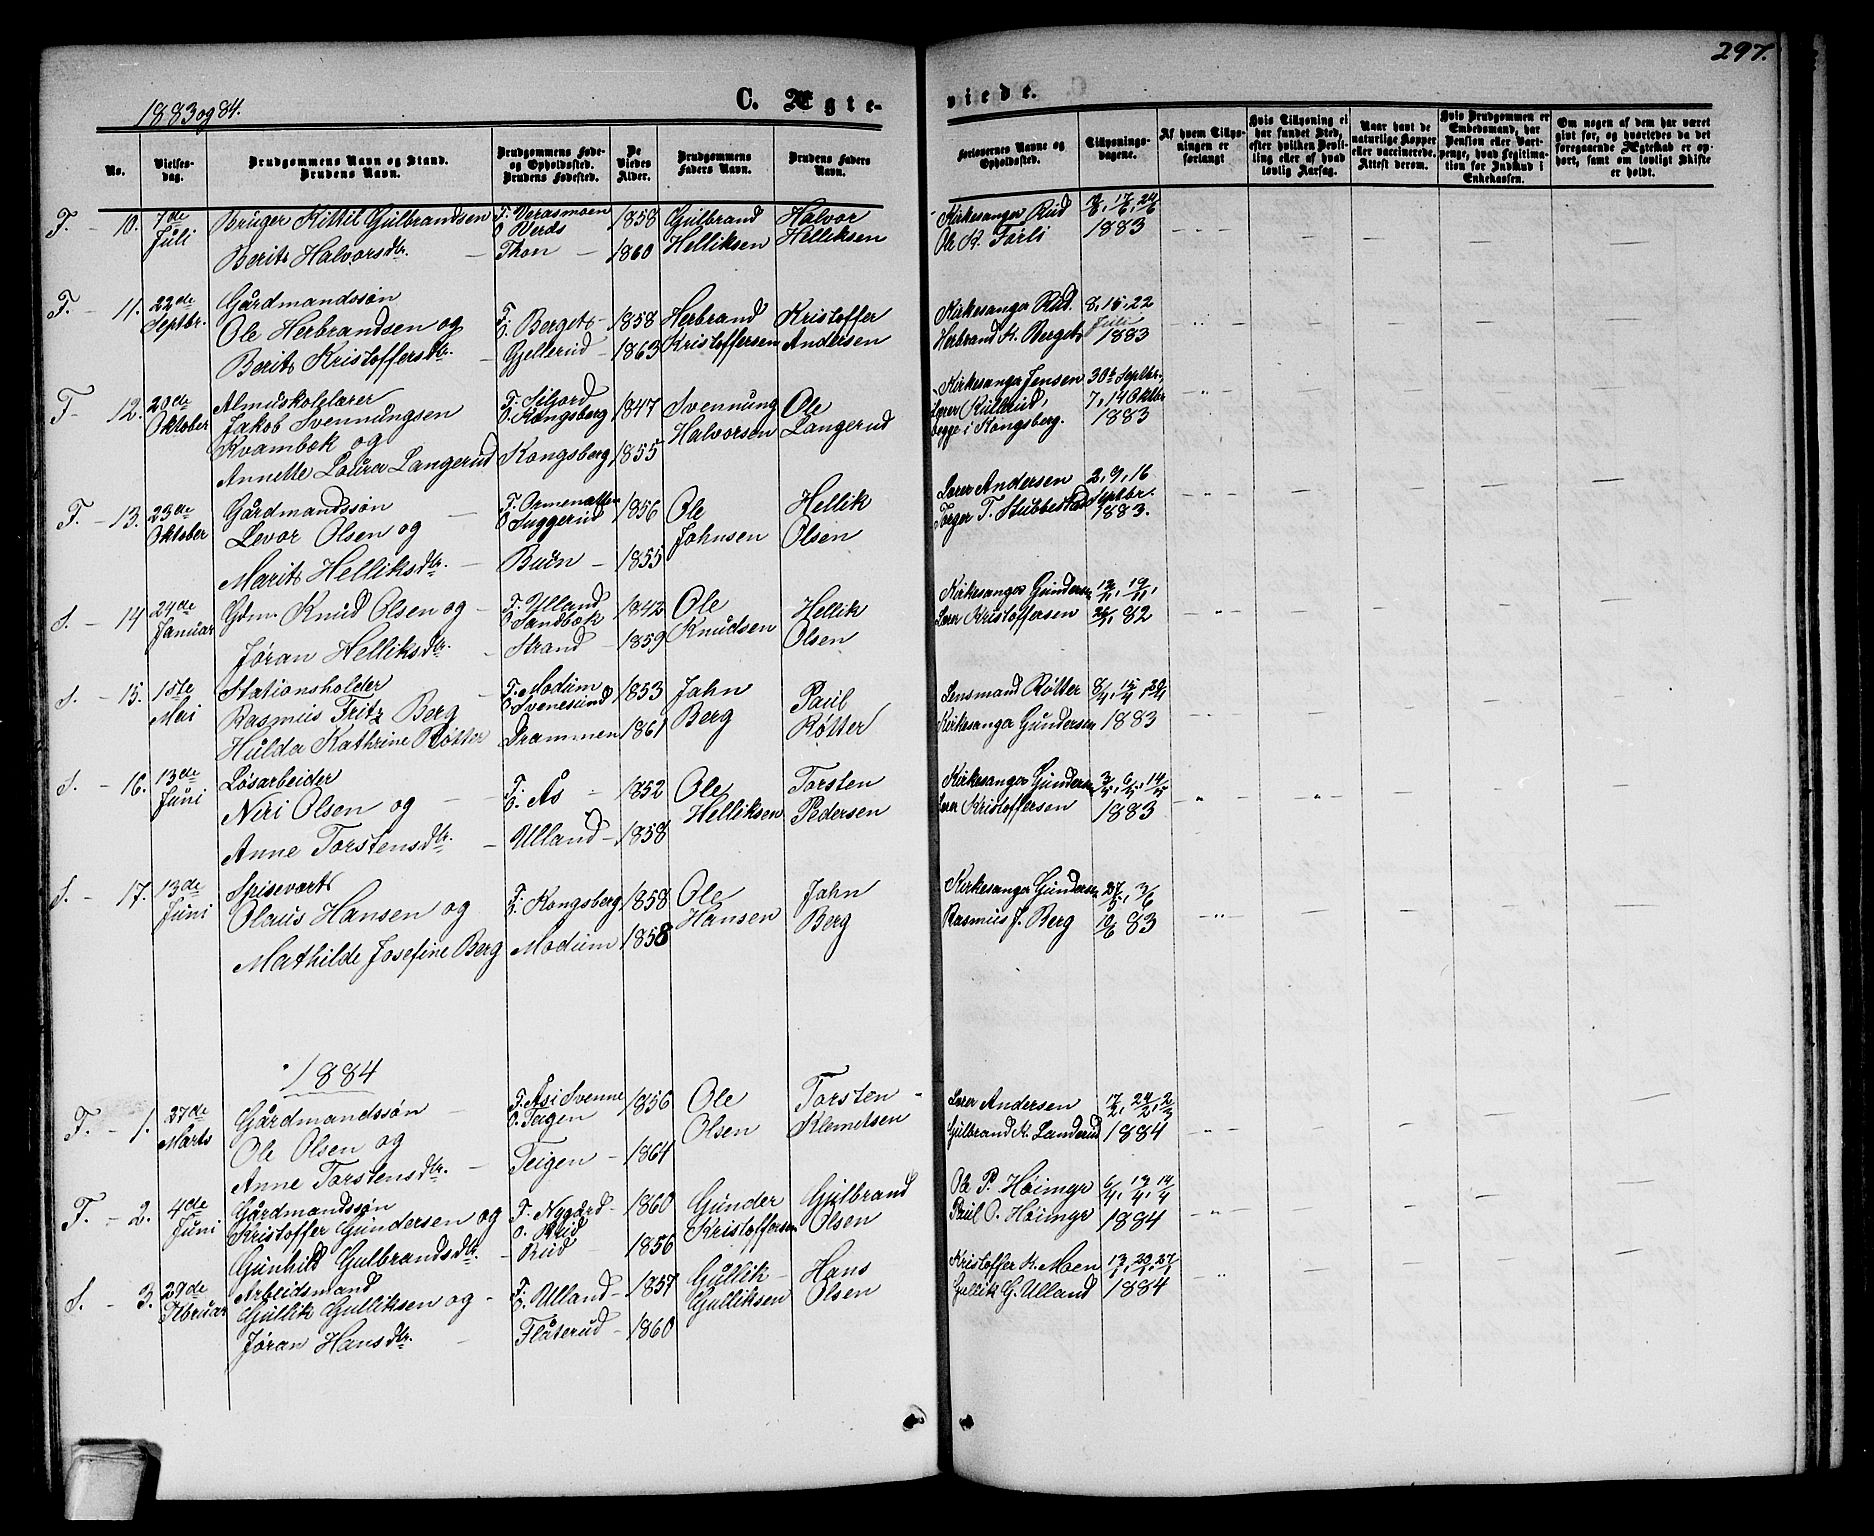 297.
1883 og 84.
C. Ægte-
viede.
No.
Vielses-
dag.
Brudgommens Navn og Stand.
Brudens Navn.
Brudgommens Føde-
og Opholdssted.
Brudens Fødested.
De
Viedes
Alder.
Brudgommens
Faders Navn.
Brudens Faders
Navn.
Forlovernes Navne og
Opholdssted.
Tillysnings-
dagene.
Af hvem Tillys-
ningen er
forlangt
Hvis Tillysning ei
har fundet Sted,
efter hvilken Bevil-
ling eller af hvad
lovlig Aarsag.
Naar havt de
naturlige Kopper
eller vaccinerede.
Attest derom.
Hvis Brudgommen er
Embedsmand, har
Pension eller Vart-
penge, hvad Legitima-
tion for Indskud i
Enkekassen.
Om nogen af dem har været
givt før, og hvorledes da det
foregaaende Ægteskab er op-
hørt, samt om lovligt Skifte
er holdt.
F. - 10. 7de Juli
Bruger Kittil Gulbrandsen
Berit Halvorsdtr. -
F. Verasmoen
O Berds
Thon -
1858
1860
Gulbrand
Helliksen
Halvor
Helliksen
Kirkesanger Rud
Ole K. Forli
1883
F. - 11. 22de Septbr.
Gårdmandssøn
Ole Herbrandsen og
Berit Kristoffersdtr. -
F. O. Berget -
Gjellerud -
1858
1863
Herbrand
Kristoffersen
Kristoffer
Andersen
Kirkesanger Rud.
Herbrand K. Berget
8, 15, 22
Juli
1883
F - 12. 20de Oktober
Almuskolelærer
Jakob Svennungsen
Kvambek og
Annette Loura Langerud
F. Siljord
O. Kongsberg
Kongsberg
1847
1855
Svennung
Halvorsen
Ole
Langerud
Kirkesanger Jensen
Lærer Kullerud,
begge i Kongsberg.
30te Septbr.,
7, 14 Oktbr
1883
F. - 13. 23de Oktober
Gårdmandssøn -
Levor Olsen og
Marit Helliksdtr. -
O Tuggerud
Buin -
1856
1855
Ole
Johnsen
Hellik
Olsen
Lærer Andersen
Torger T. Stubbestad
2, 9, 16
Septbr.
1883.
S. - 14 24de Januar
Gdm. Knud Olsen og -
Jøran Helliksdtr. -
F. Ulland
O Sandbæk
Strand -
1842
1859
Ole
Knudsen
Hellik
Olsen
Kirkesanger Gundersen
Lærer Kristoffersen
12/11, 19/11,
26/11 82
S. - 15. 1ste Mai
Stationsholder -
Rasmus Fritz Berg
Hulda Kathrine Røtter
F. Modum
O Svenesund
Drammen
1853
1861
Jahn
Berg
Paul
Røtter
Lensmand Røtter
Kirkesanger Gundersen
8/4, 15/4
1883
S. - 16. 13de Juni
Løsarbeider
Niri Olsen og -
Anne Torstensdtr. -
F. O. Ås -
Ulland -
1852
1858
Ole
Helliksen
Torsten
Pedersen
Kirkesanger Gundersen
Lærer Kristoffersen
3/5, 6/5, 14/5
1883
S. - 17. 13de Juni
Spisevært
Olaus Hansen og
Mathilde Josefine Berg
F. O. Kongsberg
Modum
1858
1858
Ole
Hansen
Jahn
Berg
Kirkesanger Gundersen
Rasmus J. Berg
27/5, 3/6
10/6 83
1884
F. - 1. 27de Marts
Gårdmandssøn -
Ole Olsen og
Anne Torstensdtr. -
F. Ås i Svenne
O. Teigen
Teigen -
1856
1864
Ole
Olsen
Torsten -
Klemetsen
Lærer Andersen
Gulbrand K. Landerud
17/2, 24/2, 2/3
1884
F. - 2. 4de Juni
Gårdmandssøn
Kristoffer Gundersen og
Gunhild Gulbrandsdtr. -
F. Nygård -
O. Rud
Rud -
1860
1856
Gunder
Kristoffersen
Gulbrand
Olsen
Ole P. Hoimyr
Paul O. Hoimyr
6/4, 13/4, 14/4
1884
S. - 3. 29de Februar
Arbeidsmand
Gullik Gulliksen og -
Jøran Hansdtr. -
F. O. Ulland -
Flåterud -
1857
1860
Gullik -
Gulliksen
Hans
Olsen
Kristoffer K. Moen
Gullik G. Ulland
13/1, 20/1, 27/1
1884